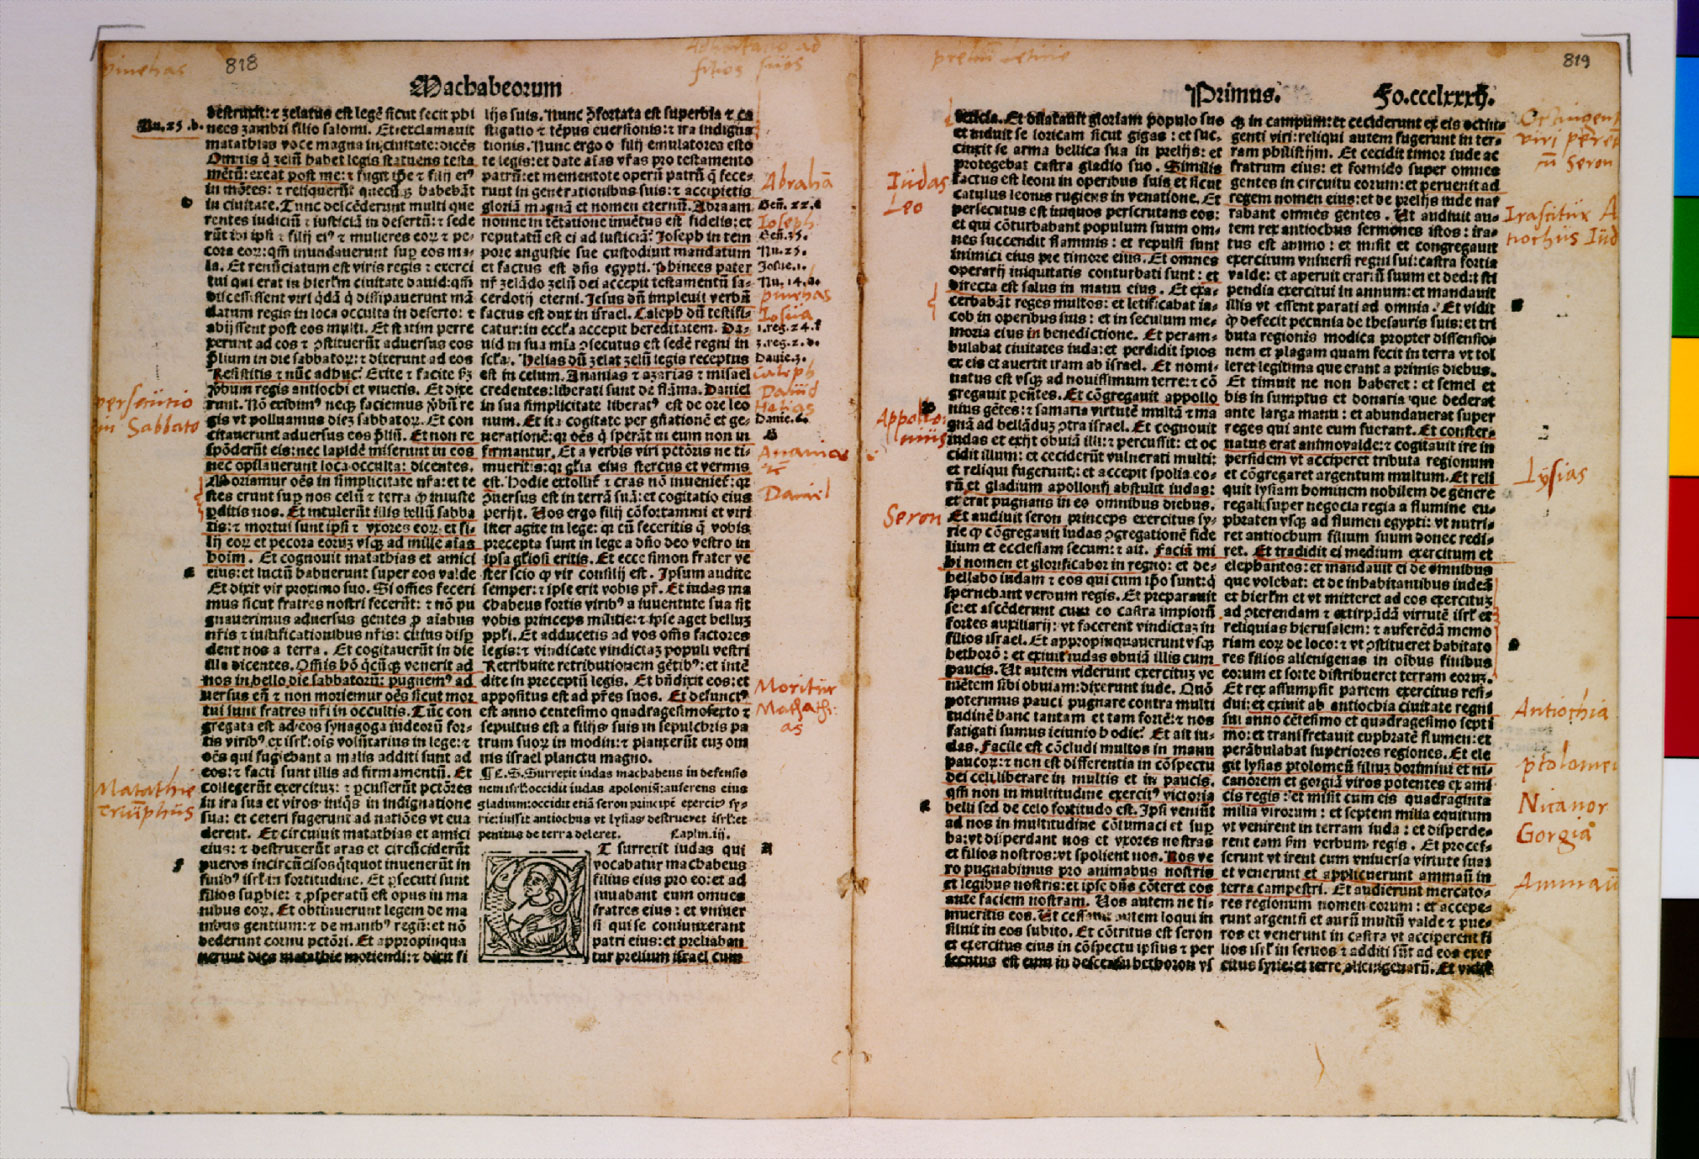 818
Machabeorum
destruxit: ⁊ zelatus est legē sicut fecit phi
nees zambri filio salomi. Et exclamauit
matathias voce magna in ciuitate: dicēs
Omnis q̄ zelū habet legis statuens testa
mētū: exeat post me: ⁊ fugit ip̄e ⁊ filij eiꝰ
in mōtes: ⁊ reliquerūt quecūqꝫ habebāt
in ciuitate. Tunc descēderunt multi que
rentes iudiciū ⁊ iusticiā in desertū: ⁊ sede
rūt ibi ipsi ⁊ filij eiꝰ ⁊ mulieres eoꝝ ⁊ pe-
cora eoꝝ: qm̄ inundauerunt suꝑ eos ma-
la. Et renūciatum est viris regis ⁊ exerci
tui qui erat in hierlm̄ ciuitate dauid: qm̄
discessissent viri q̄dā q̄ dissipauerunt mā
datum regis in loca occulta in deserto: ⁊
abijssent post eos multi. Et statim perre
xerunt ad eos ⁊ ꝯstituerūt aduersus eos
p̄lium in die sabbatoꝝ: ⁊ dixerunt ad eos
Resistitis ⁊ nūc adhuc? Exite ⁊ facite ẜꝫ
ꝟbum regis antiochi et viuetis. Et dixe
runt. Nō exibimꝰ neqꝫ faciemus ꝟbū re
gis vt polluamus diez sabbatoꝝ. Et con
citauerunt aduersus eos p̄liū. Et non re
spōderūt eis: nec lapidē miserunt in eos
nec oppilauerunt loca occulta: dicentes.
Moriamur oēs in simplicitate nr̄a: et te
stes erunt suꝑ nos celū ⁊ terra ꝙ iniuste
ꝑditis nos. Et intulerūt illis bellū sabba
tis: ⁊ mortui sunt ipsi ⁊ vxores eoꝝ et fi-
lij eoꝝ et pecora eorum vsqꝫ ad mille aīas
hoīm. Et cognouit matathias et amici
eius: et luctū habuerunt super eos valde
Et dixit vir proximo suo. Si omēs feceri
mus sicut fratres nostri fecerūt: ⁊ nō pu
gnauerimus aduersus gentes ꝓ aiabus
nr̄is ⁊ iustificationibus nr̄is: citius disꝑ
dent nos a terra. Et cogitauerūt in die
illa dicentes. Om̄is hō q̄cūqꝫ venerit ad
nos in bello die sabbatorū: pugnemꝰ ad
uersus eū ⁊ non moriemur oēs sicut mor
tui sunt fratres nr̄i in occultis. Tūc con
gregata est ad eos synagoga iudeorū for-
tis viribꝰ ex isrl̄: oīs volūtarius in lege: ⁊
oēs qui fugiebant a malis additi sunt ad
eos: ⁊ facti sunt illis ad firmamentū. Et
collegerūt exercitum: ⁊ ꝑcusserūt pctōres
in ira sua et viros iniq̄s in indignatione
sua: et ceteri fugerunt ad natiōes vt eua
derent. Et circuiuit matathias et amici
eius: ⁊ destruxerūt aras et circūciderūt
pueros incircūcisos q̄tquot inuenerūt in
finibꝰ isrl̄: in fortitudine. Et ꝑsecuti sunt
filios supbie: ⁊ ꝓsperatū est opus in ma
nibus eoꝝ. Et obtinuerunt legem de ma
nibus gentium: ⁊ de manibꝰ regū: et nō
dederunt cornu pctōri. Et appropinqua
uerunt dies matathie moriendi: ⁊ dixit fi
lijs suis. Nunc ꝯfortata est superbia ⁊ ca
stigatio ⁊ tēpus euersionis: ⁊ ira indigna
tionis. Nunc ergo o filij emulatores esto
te legis: et date aīas vr̄as pro testamento
patrū: et mementote operū patrū q̄ fece-
runt in generationibus suis: ⁊ accipietis
gloriā magnā et nomen eternū. Abraam
nonne in tētatione inuētus est fidelis: et
reputatū est ei ad iusticiā? Joseph in tem
pore angustie sue custodiuit mandatum
et factus est dn̄s egypti. Phinees pater
nr̄ zelādo zelū dei accepit testamentū sa-
cerdotij eterni. Jesus dū impleuit verbū
factus est dux in israel. Caleph dū testifi
catur: in eccl̄a accepit hereditatem. Da-
uid in sua mīa ꝯsecutus est sedē regni in
scl̄a. Helias dū zelat zelū legis receptus
est in celum. Ananias ⁊ azarias ⁊ misael
credentes: liberati sunt de flāma. Daniel
in sua simplicitate liberatꝰ est de ore leo
num. Et ita cogitate per gn̄ationē et ge-
nerationē: qꝛ oēs q̄ sperāt in eum non in
firmantur. Et a verbis viri pctōris ne ti-
mueritis: qꝛ gl̄ia eius stercus et vermis
est. Hodie extollit ⁊ cras nō inueniet: qꝛ
ꝯuersus est in terrā suā: et cogitatio eius
perijt. Vos ergo filij cōfortamini et viri
liter agite in lege: qꝛ cū feceritis q̄ vobis
precepta sunt in lege a dn̄o deo vestro in
ipsa gl̄iosi eritis. Et ecce simon frater ve
ster scio ꝙ vir consilij est. Ipsum audite
semper: ⁊ ipse erit vobis pr̄. Et iudas ma
chabeus fortis viribꝰ a iuuentute sua sit
vobis princeps militie: ⁊ ipse aget bellum
ppl̄i. Et adducetis ad vos om̄s factores
legis: ⁊ vindicate vindictaꝫ populi vestri
Retribuite retributionem gētibꝰ: et intē
dite in preceptū legis. Et bn̄dixit eos: et
appositus est ad pr̄es suos. Et defunctꝰ
est anno centesimo quadragesimosexto ⁊
sepultus est a filijs suis in sepulchris pa
trum suoꝝ in modin: ⁊ planxerūt eum om
nis israel planctu magno.
¶ C.S. Surrexit iudas machabeus in defensio
nem isrl̄: occidit iudas apoloniū: auferens eius
gladium: occidit etiā seron principē exercitꝰ sy-
rie: iussit antiochus vt lysias destrueret isrl̄: et
penitus de terra deleret. Caplm. iij.
ET surrexit iudas qui
vocabatur machabeus
filius eius pro eo: et ad
iuuabant eum omnes
fratres eius: et vniuer
si qui se coniunxerant
patri eius: et preliaban
tur prelium israel cum
Nu.25.b.
b
e
f
Gen̄.22.a
Gen̄.35.
Nu.25.
Josue.1.
Nu.14.a.
1.reg.24.f
3.reg.2.d.
Danie.3.
Danie.6.
A
pinehas
filios suos
persecutio
in Sabbato
Matathie
triūphus
Abrahā
Ioseph
pinehas
Iosua
Caleph
Dauid
Helias
Ananias
Daniel
Moritur
Mathathi-
as
819
Primus.
Fo.ccclxxxij.
leticia. Et dilatauit gloriam populo suo
et induit se loricam sicut gigas: et suc-
cinxit se arma bellica sua in prelijs: et
protegebat castra gladio suo. Similis
factus est leoni in operibus suis et sicut
catulus leonis rugiens in venatione. Et
persecutus est iniquos perscrutans eos:
et qui cōturbabant populum suum om-
nes succendit flammis: et repulsi sunt
inimici eius pre timore eius. Et omnes
operarij iniquitatis conturbati sunt: et
directa est salus in manu eius. Et exa-
cerbabāt reges multos: et letificabat ia-
cob in operibus suis: et in seculum me-
moria eius in benedictione. Et peram-
bulabat ciuitates iuda: et perdidit īpios
ex eis et auertit iram ab israel. Et nomi-
natus est vsqꝫ ad nouissimum terre: ⁊ cō
gregauit ꝑeuntes. Et cōgregauit appollo
nius gētes: ⁊ samaria virtutē multā ⁊ ma
gnā ad bellādum ꝯtra israel. Et cognouit
iudas et exijt obuiā illi: ⁊ percussit: et oc
cidit illum: et ceciderūt vulnerati multi:
et reliqui fugerunt: et accepit spolia eo-
rū et gladium apollonij abstulit iudas:
et erat pugnans in eo omnibus diebus.
Et audiuit seron princeps exercitus sy-
rie ꝙ cōgregauit iudas ꝯgregationē fide
lium et ecclesiam secum: ⁊ ait. Faciā mi
hi nomen et glorificabor in regno: et de-
bellabo iudam ⁊ eos qui cum ip̄o sunt: q̄
spernebant verbum regis. Et preparauit
se: et ascēderunt cum eo castra impiorū
fortes auxiliarij: vt facerent vindictaꝫ in
filios israel. Et appropinquauerunt vsqꝫ
bethorō: et exiuit iudas obuiā illis cum
paucis. Ut autem viderunt exercitum ve
niētem sibi obuiam: dixerunt iude. Quō
poterimus pauci pugnare contra multi
tudinē hanc tantam et tam fortē: ⁊ nos
fatigati sumus ieiunio hodie? Et ait iu-
das. Facile est cōcludi multos in manu
paucoꝝ: ⁊ non est differentia in cōspectu
dei celi liberare in multis et in paucis.
qm̄ non in multitudine exercitꝰ victoria
belli sed de celo fortitudo est. Ipsi veniūt
ad nos in multitudine cōtumaci et suꝑ
ba: vt disperdant nos et vxores nostras
et filios nostros: vt spolient nos. Nos ve
ro pugnabimus pro animabus nostris
et legibus nostris: et ipse dn̄s cōteret eos
ante faciem nostram. Vos autem ne ti-
mueritis eos. Ut cessauit autem loqui in
siluit in eos subito. Et cōtritus est seron
et exercitus eius in cōspectu ipsius ⁊ per
secutus est eum in descensu bethoron vs
qꝫ in campum: et ceciderunt ex eis octin-
genti viri: reliqui autem fugerunt in ter-
ram philistijm. Et cecidit timor iude ac
fratrum eius: et formido super omnes
gentes in circuitu eorum: et peruenit ad
regem nomen eius: et de prelijs iude nar
rabant omnes gentes. Ut audiuit au-
tem rex antiochus sermones istos: ira-
tus est animo: et misit et congregauit
exercitum vniuersi regni sui: castra fortia
valde: et aperuit erariū suum et dedit sti
pendia exercitui in annum: et mandauit
illis vt essent parati ad omnia. Et vidit
ꝙ defecit pecunia de thesauris suis: et tri
buta regionis modica propter dissensio-
nem et plagam quam fecit in terra vt tol
leret legitima que erant a primis diebus.
Et timuit ne non haberet: et semel et
bis in sumptus et donaria que dederat
ante larga manu: et abundauerat super
reges qui ante eum fuerant. Et conster-
natus erat animo valde: ⁊ cogitauit ire in
persidem vt acciperet tributa regionum
et cōgregaret argentum multum. Et reli
quit lysiam hominem nobilem de genere
regali: super negocia regia a flumine eu-
phraten vsqꝫ ad flumen egypti: vt nutri-
ret antiochum filium suum donec redi-
ret. Et tradidit ei medium exercitum et
elephantos: et mandauit ei de omnibus
que volebat: et de inhabitantibus iudeā
et hierlm̄ et vt mitteret ad eos exercitum
ad ꝯterendam ⁊ extirpādā virtutē isrl̄ et
reliquias hierusalem: ⁊ auferēdā memo
riam eoꝝ de loco: ⁊ vt ꝯstitueret habitato
res filios alienigenas in oībus finibus
eorum et sorte distribueret terram eorum.
Et rex assumpsit partem exercitus resi-
dui: et exiuit ab antiochia ciuitate regni
sui anno cētesimo et quadragesimo septi
mo: et transfretauit euphratē flumen: et
perābulabat superiores regiones. Et ele
git lysias ptolomeū filium dorimini et ni-
canorem et gorgiā viros potentes ex ami
cis regis: et misit cum eis quadraginta
milia virorum: et septem milia equitum
vt venirent in terram iuda: et disperde-
rent eam ẜm verbum regis. Et proces-
serunt vt irent cum vniuersa virtute sua:
et venerunt et applicuerunt ammaū in
terra campestri. Et audierunt mercato-
res regionum nomen eorum: et accepe-
runt argentū et aurū multū valde ⁊ pue-
ros et venerunt in castra vt acciperent fi
lios isrl̄ in seruos ⁊ additi sūt ad eos exer
citus syrie: et terre alienigenarū. Et vidit
Iudas
Leo
Appollo-
nius
Seron
Octingenti
viri pereūt
cū Seron
Irascitur A
tiochus Iud
Lysias
Antiochia
ptolome
Nicanor
Gorgia
Ammaū